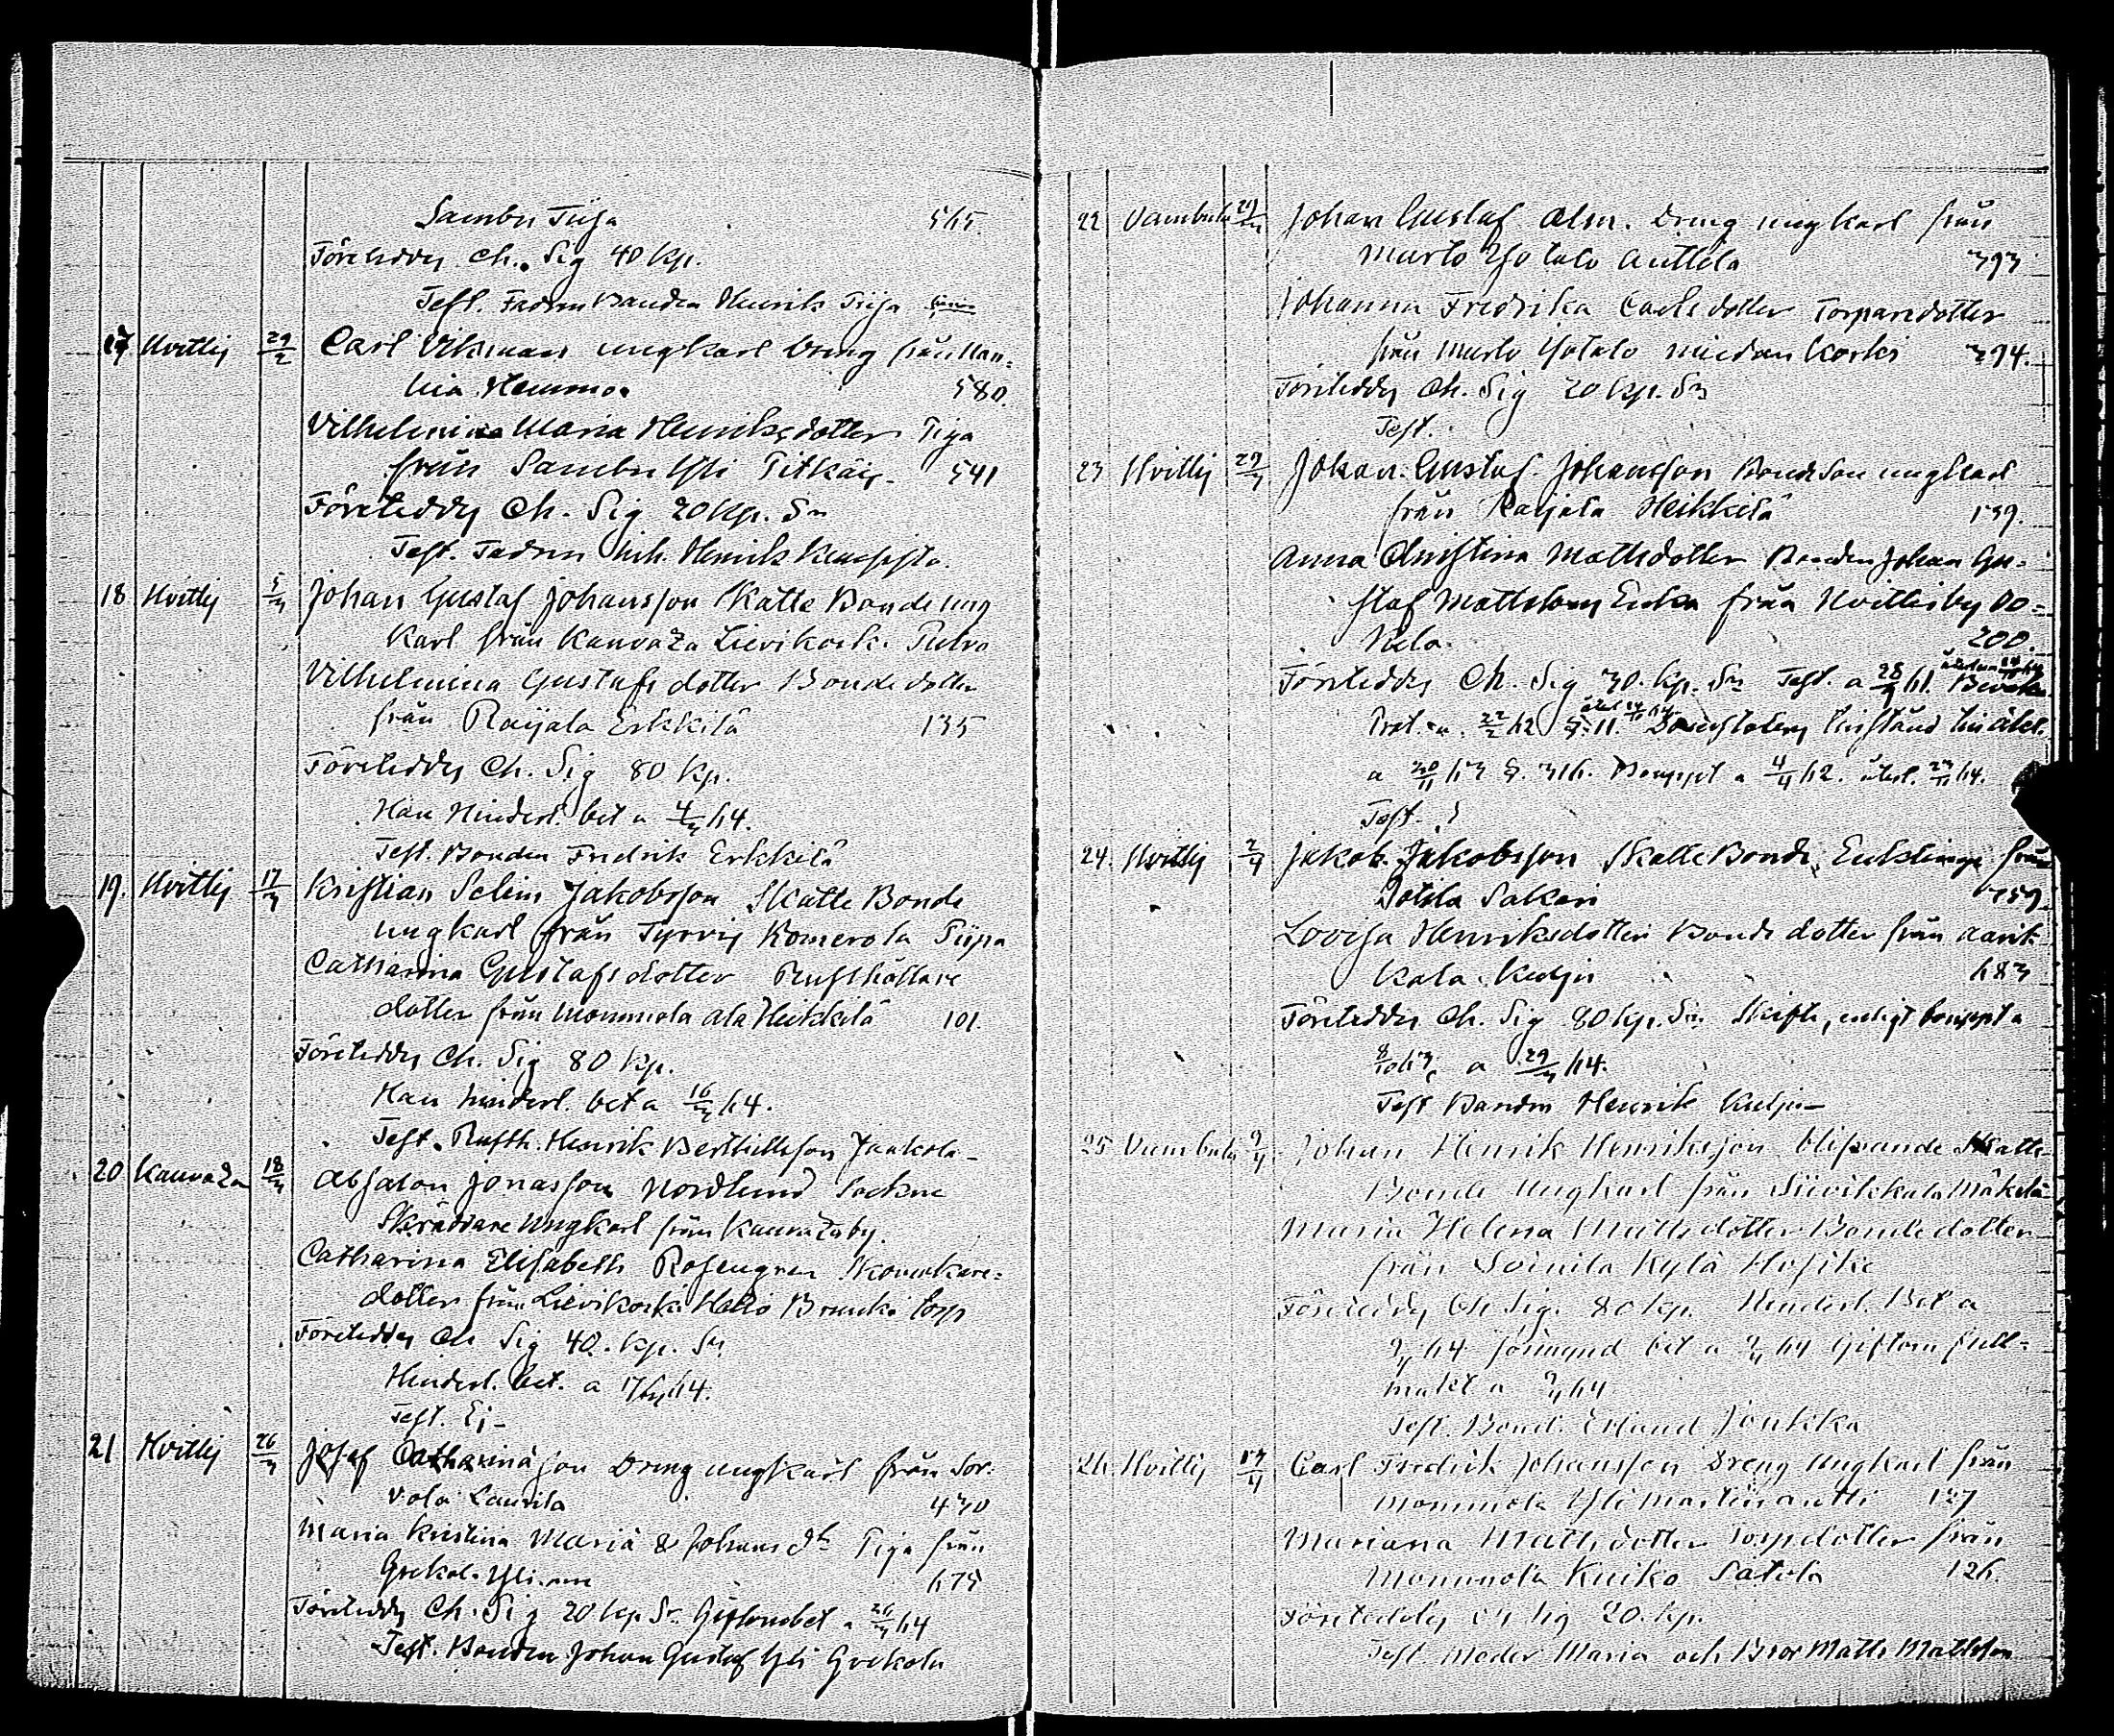 Sambu Tiija 565.
Företeddes Ch. Sig 40 kp.
Test. Fadren Bonden Henrik Tiija
17 Hvittis 29/2 Carl Vikman ungkarl Dreng från Man-
lia Hemmo. 580.
Vilhelmina Maria Henriksdotter Piga
från Sambu Yli Pitkäs. 541
Företeddes Ch. Sig 20 kp. Sm
Test. Fadren Inh. Henrik
18 Hvittis 5/3 Johan Gustaf Johansson Skatte Bonde ung
karl från Kauvaza Lievikosk. Pulva
Vilhelmina Gustafsdotter Bondedotter
från Raijala Erkkilä 135
Företeddes Ch. Sig 80 kp.
Han Hinderl. bet a 4/3 64.
Test. Bonden Fredrik Erkkilä
19. Hvittis 17/3 Kristian Selim Jakobsson Skatte Bonde
ungkarl från Tyrvis Komerola Piipa
Catharina Gustafsdotter Rusthållare
dotter från Mommola Ala Heikkilä 101.
Företeddes Ch. Sig 80 kp.
Han hinderl. bet a 16/3 64.
Test. Rusth. Henrik Berthillsson Jaakola
20 Kauvaza 18/3 Absalon Jonasson Nordlund Sockne
Skräddare Ungkarl från Kauvazaby.
Catharina Elisabeth Rosengren Skomakare-
dotter från Lievikosk. Torp
Företeddes Ch Sig 40. kp. Sm
Hinderl. bet. a 17/3 64.
Test. Ej
21 Hvittis 26/3 Josef Catharinason Dreng ungkarl från Sor-
vola Laurila 430
Maria Kristina Maria & Johans dr Piga från
Grekol. Yli 675
Företeddes Ch. Sig 20 kp. Sr. Giftomsbet a 26/3 64
Test. Bonden Johan Gustaf Yli Grekola
22 Vambula 29/3 Johan Gustaf Alm. Dreng ungkarl från
Murto Yotalo Anttila 393
Johanna Fredrika Carlsdotter Torparedotter
från Murto Yotalo Korki 394.
Företeddes Ch. Sig 20 kp. Sm
Test.
23 Hvittis 29/3 Johan Gustaf Johansson Bondeson ungkarl
från Raijala Heikkilä 139.
Anna Christina Mattsdotter Bonden Johan Gu-
staf Mattssons Enka från Hvittisby Do-
kela. 200.
Företeddes Ch. Sig 30. kp. Sm Test. a 28/ 61.
Prot. a 22/2 62 § 11. tillstånd
a 30/11 63 §. 316. Bouppt a 4/4 62. återl. 23/11 64.
Test.
24. Hvittis 2/4 Jakob Jakobsson Skatte Bonde, Enklinge från
Sakari 759.
Lovisa Henriksdotter Bonde dotter från Karit
kala Kulju 683
Företeddes Ch. Sig 80 kp. Sm. Skifte, enligt bouppt a
8/10 63, a 29/3 64.
Test Bonden Henrik Kulju
25 Vambula 9/4 Johan Henrik Henriksson blifvande Skatte
Bonde Ungkarl från Siivikkala Mäkelä
Maria Helena Mattsdotter Bondedotter
från Soinila Kylä
Företeddes Ch Sig. 80 kp. Hinderl. Bet a
9/4 64 Förmynd bet a 9/4 64 Giftom full-
makt a 9/4 64
Test. Bond. Erland Jonkka
26. Hvittis 17/4 Carl Fredrik Johansson Dreng Ungkarl från
Mommola Yli Martti 127
Mariana Mattsdotter Torpdotter från
Mommola Kuiko Satola 126.
Företeddes Ch Sig 20. kp.
Test Moder Maria och Bror Matts Mattsson